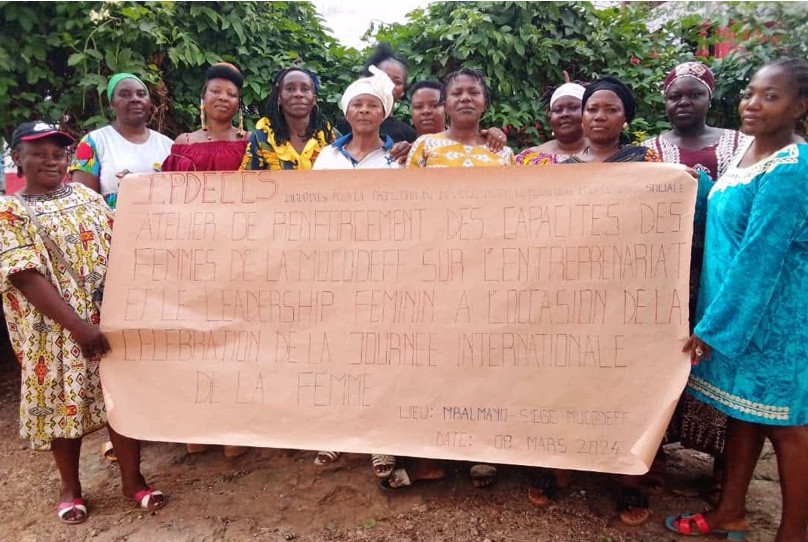 I.PDECCS INITIATIVES POUR LA PROMOTION DU SOCIALE
ATELIER DE RENFORCEMENT DES CAPACITES DES
FEMMES DE LA MUCODEFF SUR L'ENTREPRENARIAT
ET LE LEADERSHIP FEMININ A L'OCCASION DE LA
CELEBRATION DE LA JOURNEE INTERNATIONALE
DE LA FEMME
LIEU: MBALMAYO-SIEGE MUCODEFF
DATE: 08 MARS 2024